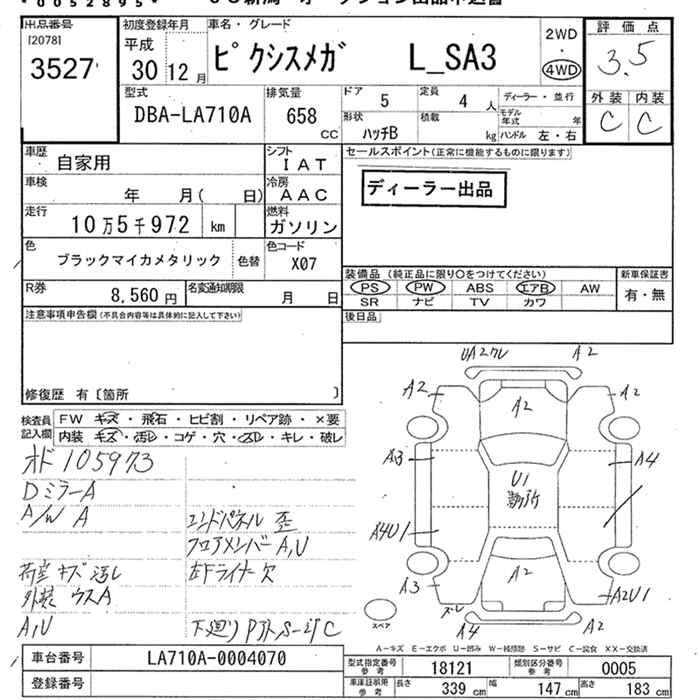 *0052895*
出品番号 [2078] 3527
初度登録年月 平成 30 12 月
車名・グレード ピクシスメガ L_SA3
2WD ・ 4WD
評価点 3.5
外装 内装
C C
型式 DBA-LA710A
排気量 658 cc
ドア 5 定員 4 人
形状 ハッチB 積載 kg
ディーラー・並行
モデル年式 年
ハンドル 左・右
車歴 自家用
シフト IAT
車検 年 月( 日)
冷房 AAC
走行 10万5千972 km
燃料 ガソリン
色 ブラックマイカメタリック 色替
色コード X07
R券 8,560 円
名変通知期限 月 日
セールスポイント(正常に機能するものに限ります)
ディーラー出品
装備品(純正品に限り○をつけてください)
PS PW ABS エアB AW
SR ナビ TV カワ
新車保証書 有・無
後日品
注意事項申告欄(不具合内容等は具体的に記入して下さい)
修復歴 有〔箇所 〕
検査員記入欄
FW キズ・飛石・ヒビ割・リペア跡・×要
内装 キズ・汚レ・コゲ・穴・スレ・キレ・破レ
オド105973
DミラーA
A/W A
エンドパネル 歪
フロアメンバーA,U
荷室キズ汚レ
左Fライナー欠
外装 ウスA
A,U
UA2 A2
A2 A2 A2
A3 U1 A4
A4U1
A3 A2 A2U1
ズレ
スペア
A4 A2
A-キズ E-エクボ U-凹み W-補修跡 S-サビ C-腐食 XX-交換済
車台番号 LA710A-0004070
登録番号
型式指定番号 参考 18121
類別区分番号 参考 0005
車庫証明用 参考 長さ 339 cm 幅 147 cm 高さ 183 cm